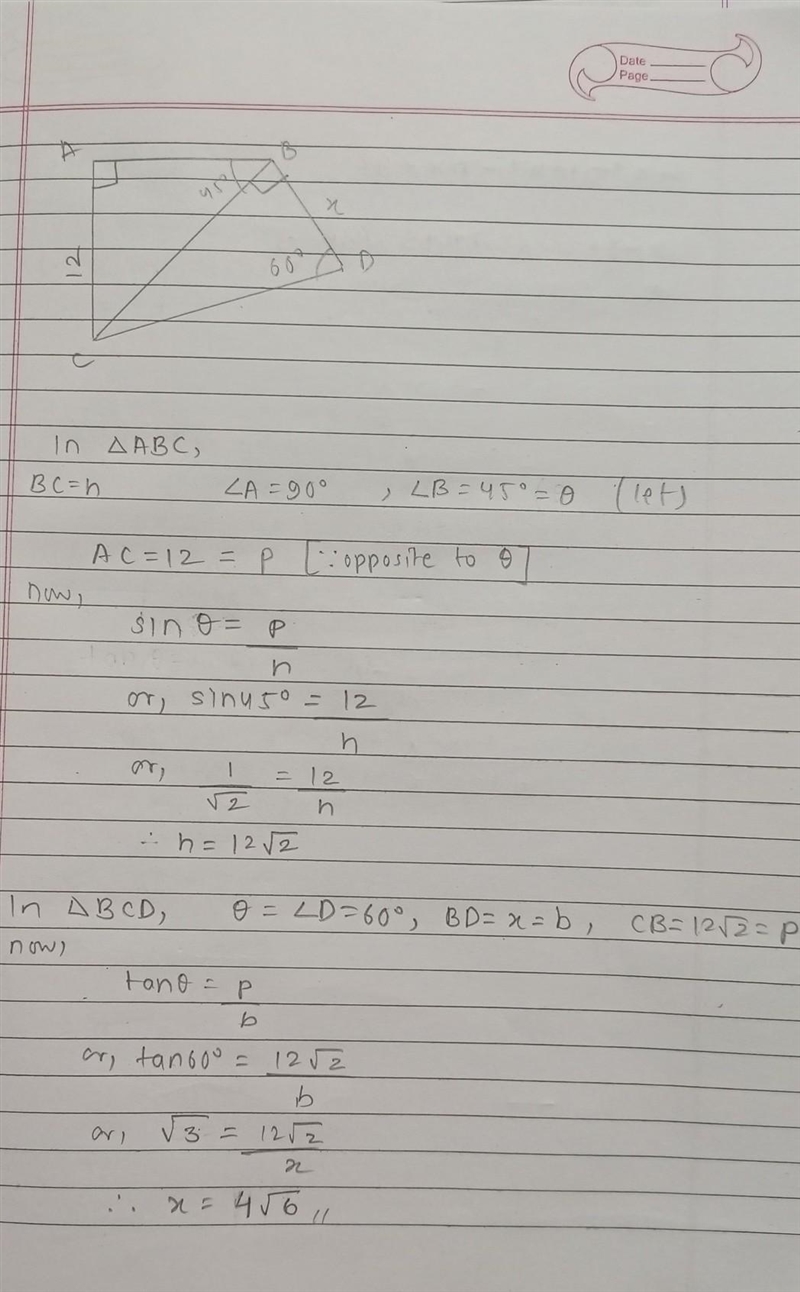 Date
Page
A B
45°
x
12
60° D
C
In △ABC,
BC=h ∠A=90° , ∠B=45°=θ (let)
AC=12 = p [∵opposite to θ]
now,
sin θ = p/h
or, sin45° = 12/h
or, 1/√2 = 12/h
∴ h = 12√2
In △BCD, θ = ∠D=60°, BD=x=b, CB=12√2=p
now,
tanθ = p/b
or, tan60° = 12√2/b
or, √3 = 12√2/x
∴ x = 4√6 //